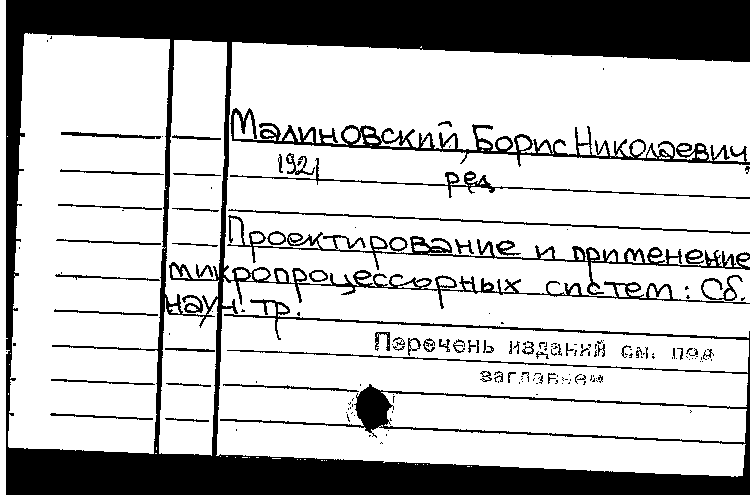 Малиновский, Борис Николаевич,
1921 ред.
Проектирование и применение
микропроцессорных систем: Сб.
науч. тр.
Перечень изданий см. под
заглавием